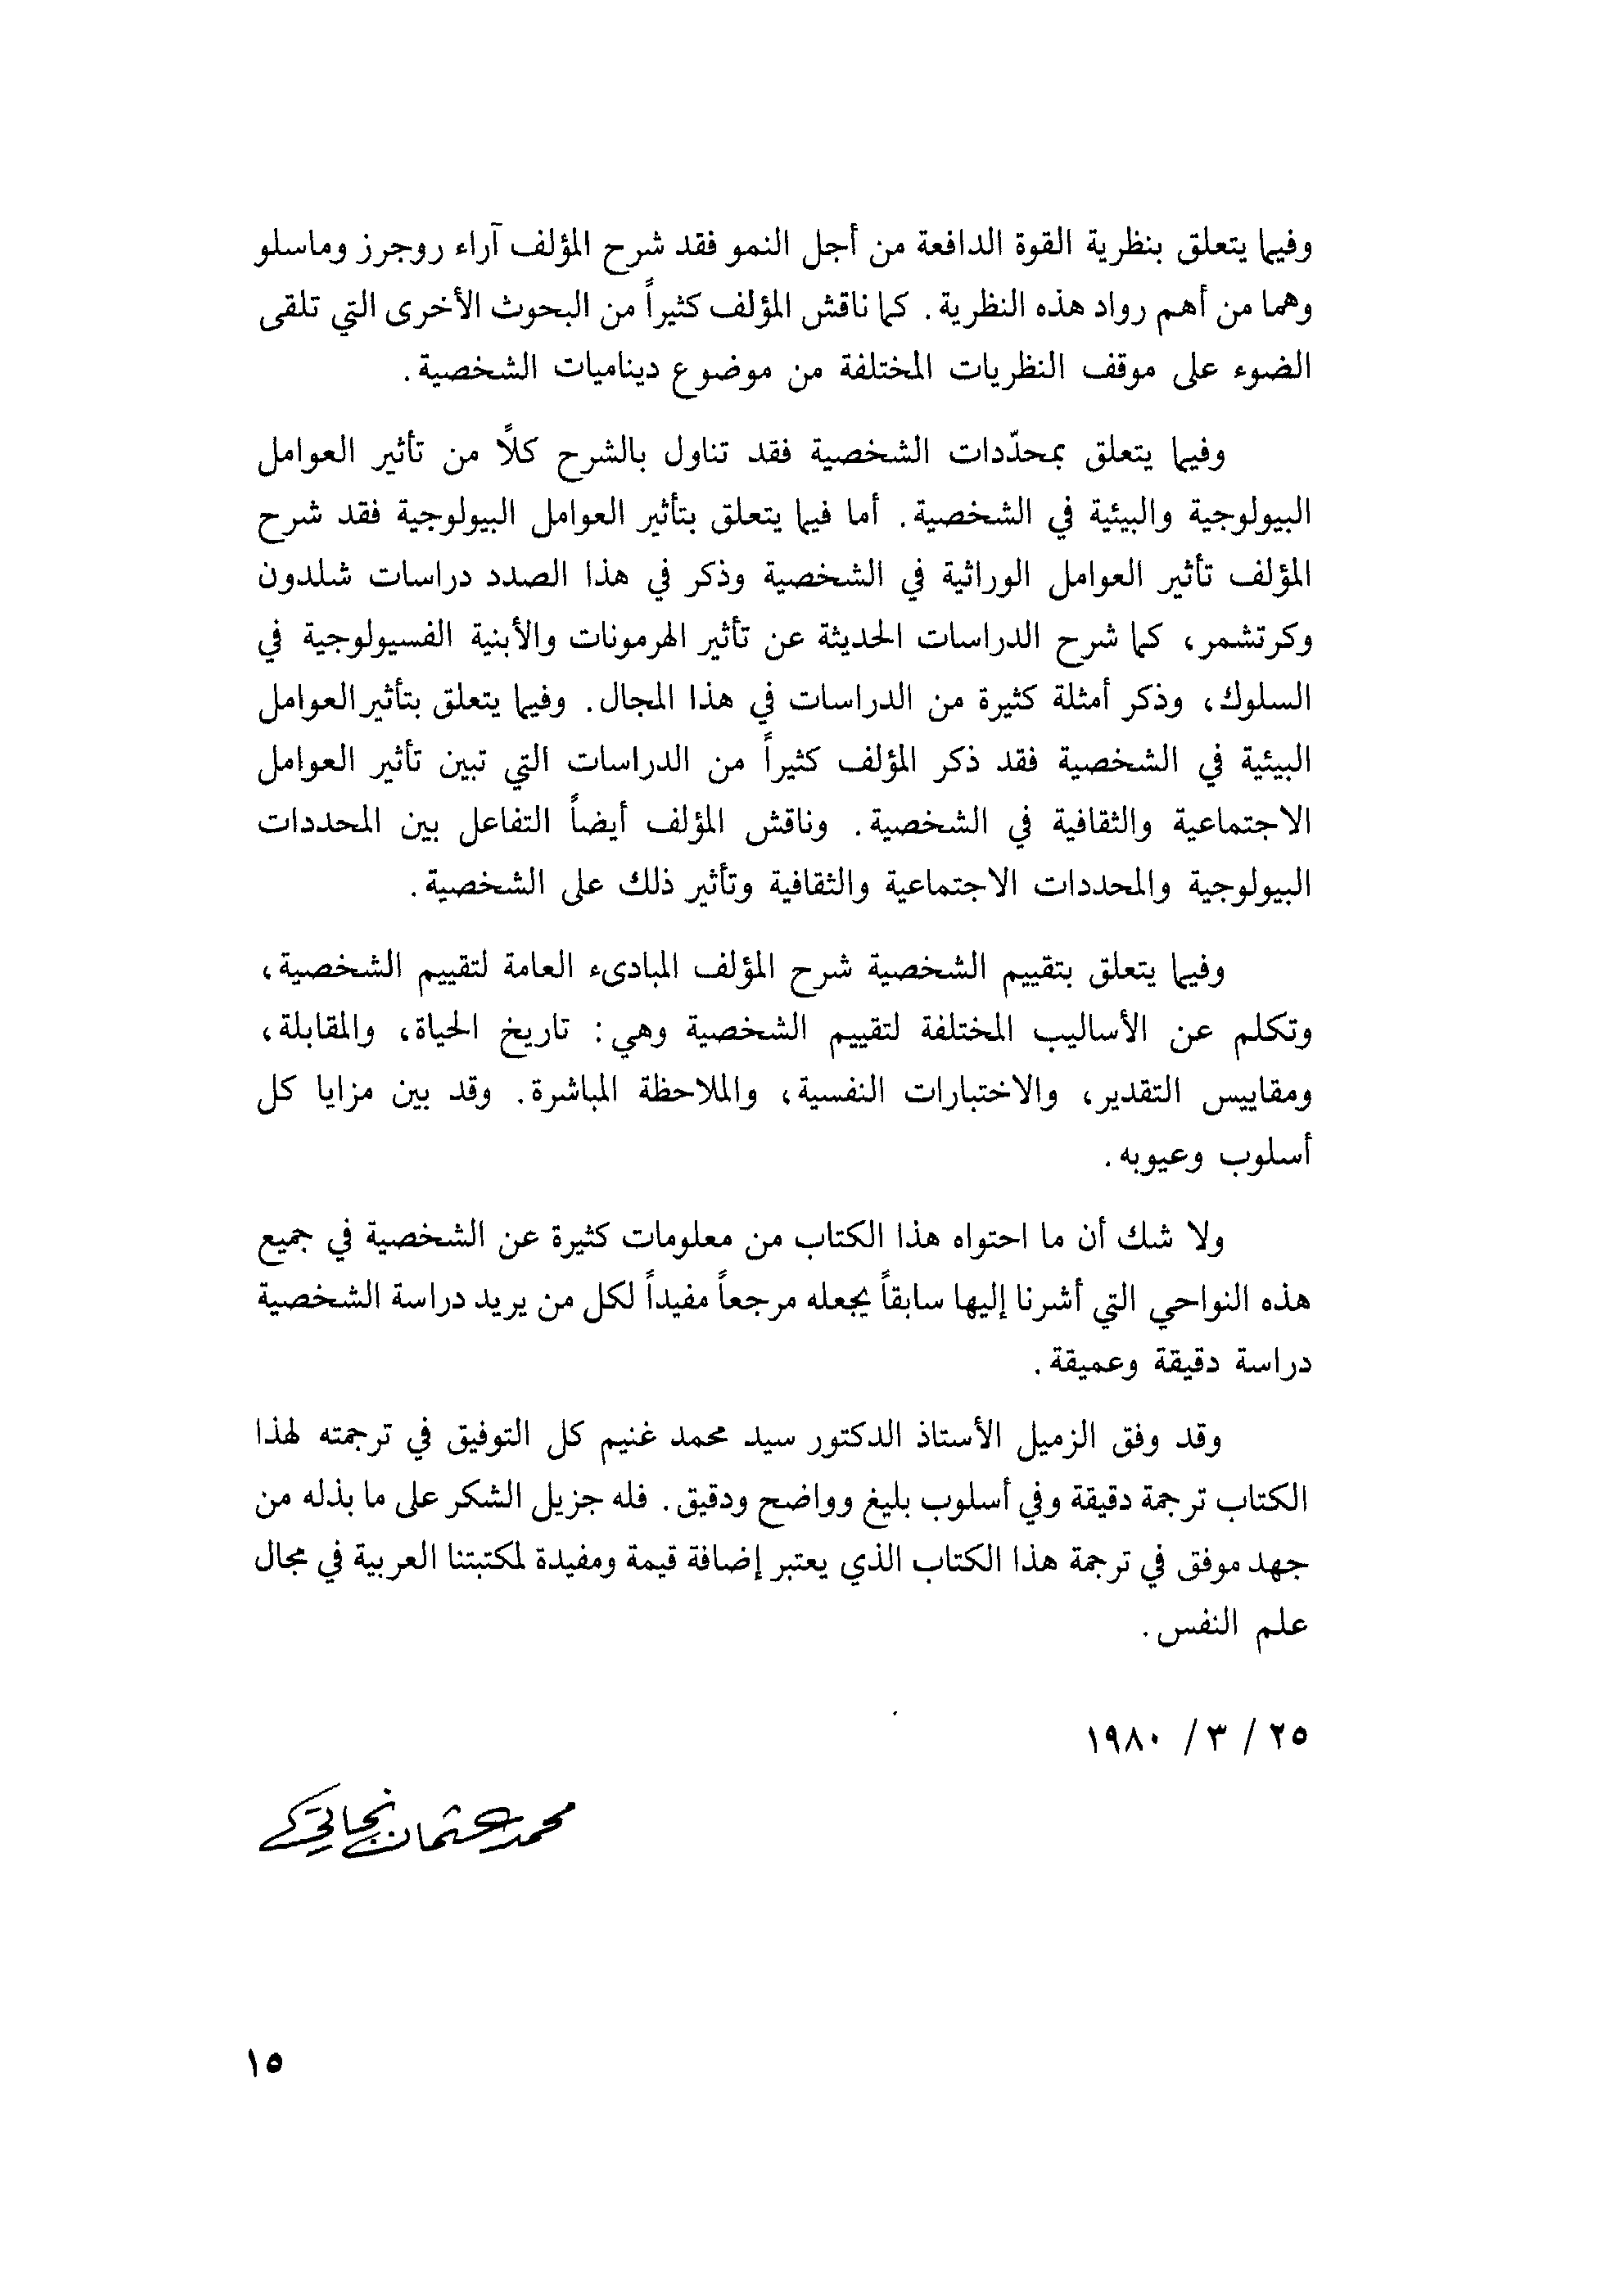 وفيما يتعلق بنظرية القوة الدافعة من أجل النمو فقد شرح المؤلف آراء روجرز وماسلو
وهما من أهم رواد هذه النظرية. كما ناقش المؤلف كثيراً من البحوث الأخرى التي تلقى
الضوء على موقف النظريات المختلفة من موضوع ديناميات الشخصية.
وفيما يتعلق بمحدّدات الشخصية فقد تناول بالشرح كلاً من تأثير العوامل
البيولوجية والبيئية في الشخصية. أما فيما يتعلق بتأثير العوامل البيولوجية فقد شرح
المؤلف تأثير العوامل الوراثية في الشخصية وذكر في هذا الصدد دراسات شلدون
وكرتشمر، كما شرح الدراسات الحديثة عن تأثير الهرمونات والأبنية الفسيولوجية في
السلوك، وذكر أمثلة كثيرة من الدراسات في هذا المجال. وفيما يتعلق بتأثير العوامل
البيئية في الشخصية فقد ذكر المؤلف كثيراً من الدراسات التي تبين تأثير العوامل
الاجتماعية والثقافية في الشخصية. وناقش المؤلف أيضاً التفاعل بين المحددات
البيولوجية والمحددات الاجتماعية والثقافية وتأثير ذلك على الشخصية.
وفيما يتعلق بتقييم الشخصية شرح المؤلف المبادىء العامة لتقييم الشخصية،
وتكلم عن الأساليب المختلفة لتقييم الشخصية وهي: تاريخ الحياة، والمقابلة،
ومقاييس التقدير، والاختبارات النفسية، والملاحظة المباشرة. وقد بين مزايا كل
أسلوب وعيوبه.
ولا شك أن ما احتواه هذا الكتاب من معلومات كثيرة عن الشخصية في جميع
هذه النواحي التي أشرنا إليها سابقاً يجعله مرجعاً مفيداً لكل من يريد دراسة الشخصية
دراسة دقيقة وعميقة.
وقد وفق الزميل الأستاذ الدكتور سيد محمد غنيم كل التوفيق في ترجمته لهذا
الكتاب ترجمة دقيقة وفي أسلوب بليغ وواضح ودقيق. فله جزيل الشكر على ما بذله من
جهد موفق في ترجمة هذا الكتاب الذي يعتبر إضافة قيمة ومفيدة لمكتبتنا العربية في مجال
علم النفس.
٢٥ / ٣ / ١٩٨٠
محمد عثمان نجاتي
١٥